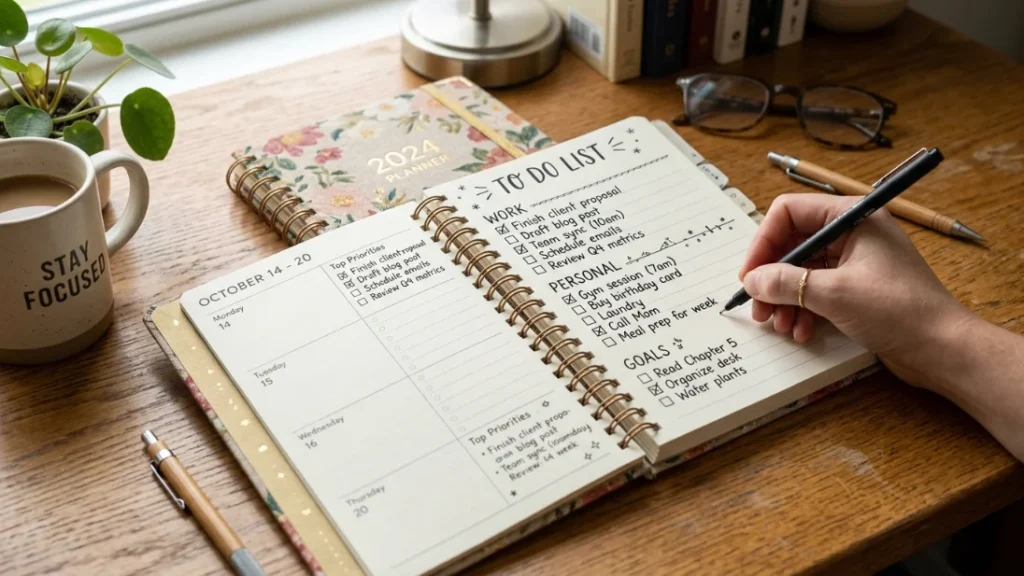 STAY
FOCUSED
2024
PLANNER
OCTOBER 14 - 20
Monday
14
Tuesday
15
Wednesday
16
Thursday
20
Top Priorities
Finish client proposal
Draft blog post
Schedule emails
Review Q4 metrics
Top Priorities
• Finish client propo-
blog post
• Team sync
Review week
TO DO LIST
WORK
Finish client proposal
Draft blog post
Team sync (10am)
Schedule emails
Review Q4 metrics
PERSONAL
Gym session (7am)
Buy birthday card
Laundry
Call Mom
Meal prep for week
GOALS
Read Chapter 5
Organize desk
Water plants